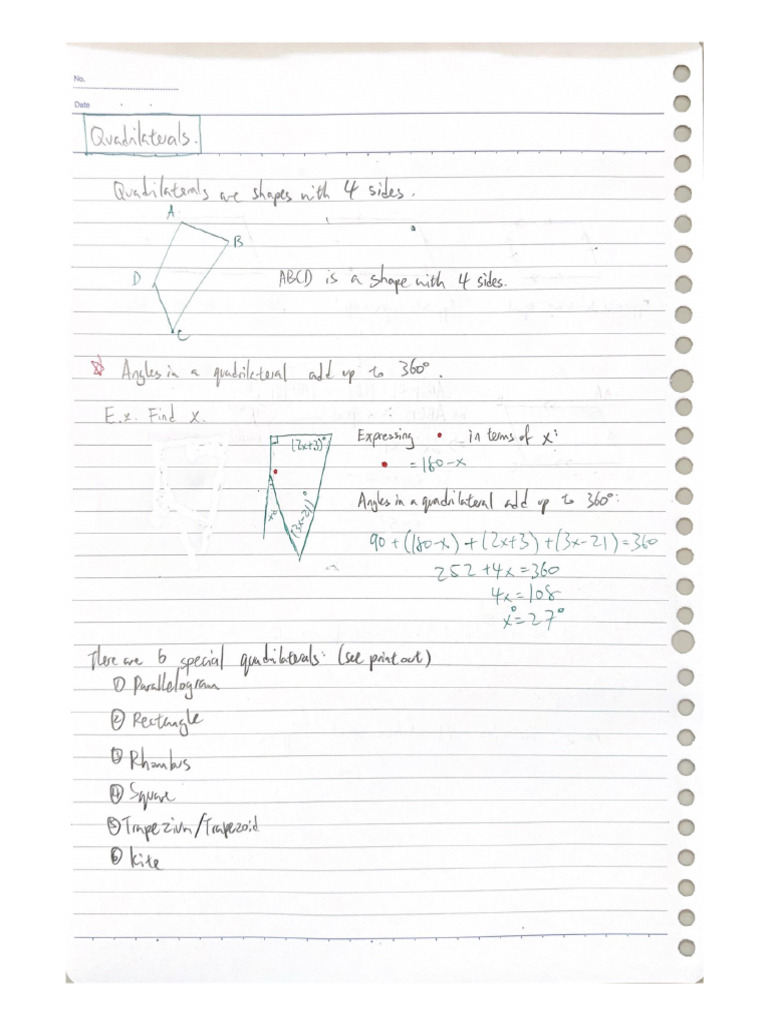 No.
Date
Quadrilaterals.
Quadrilaterals are shapes with 4 sides.
A
B
D
ABCD is a shape with 4 sides.
C
Angles in a quadrilateral add up to 360°.
E.x. Find x.
(2x+3)°
x°
(3x-21)°
Expressing • in terms of x:
• = 180-x
Angles in a quadrilateral add up to 360°:
90 + (180-x) + (2x+3) + (3x-21) = 360
252 + 4x = 360
4x = 108
x° = 27°
There are 6 special quadrilaterals: (see print out)
① Parallelogram
② Rectangle
③ Rhombus
④ Square
⑤ Trapezium/Trapezoid
⑥ kite